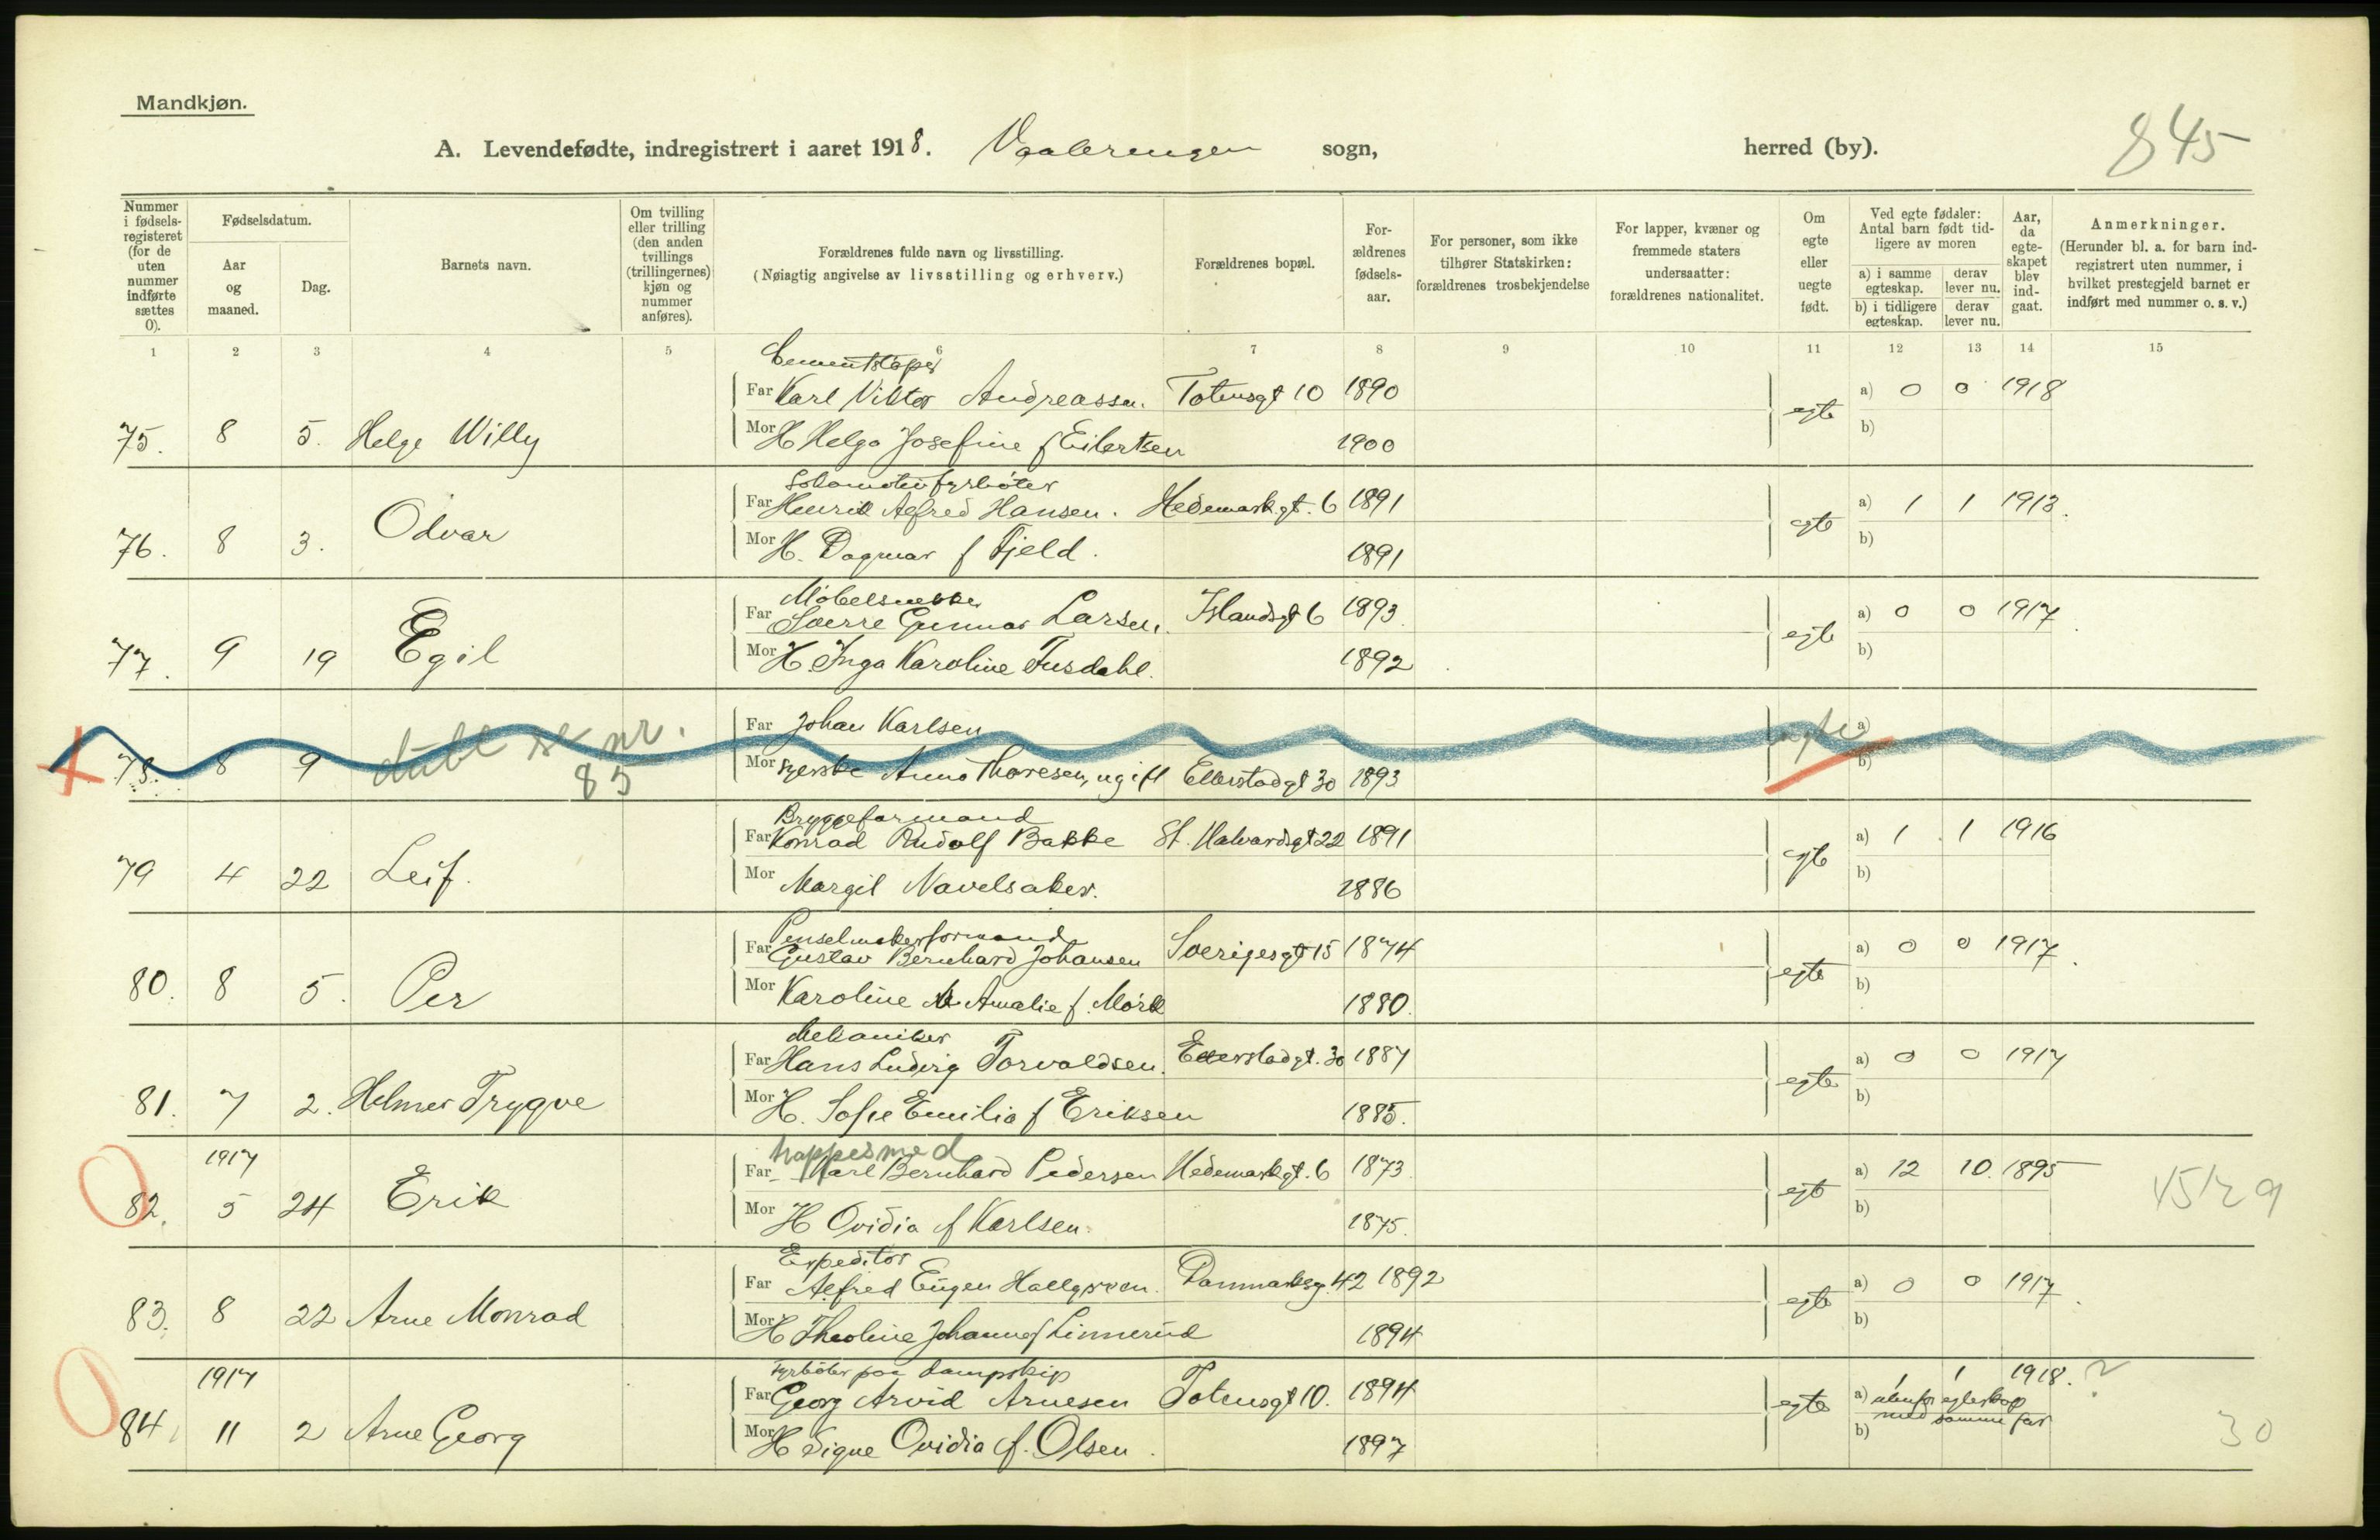 Mandkjøn.
A. Levendefødte, indregistrert i aaret 1918. Vaalerengen sogn, herred (by). 845
Nummer i fødsels-registeret (for de uten nummer indførte sættes 0).
Fødselsdatum.
Aar og maaned.
Dag.
Barnets navn.
Om tvilling eller trilling (den anden tvillings (trillingernes) kjøn og nummer anføres).
Forældrenes fulde navn og livsstilling.
(Nøiagtig angivelse av livsstilling og erhverv.)
Forældrenes bopæl.
For-ældrenes fødsels-aar.
For personer, som ikke tilhører Statskirken: forældrenes trosbekjendelse
For lapper, kvæner og fremmede staters undersaatter: forældrenes nationalitet.
Om egte eller uegte født.
Ved egte fødsler: Antal barn født tid-ligere av moren
a) i samme egteskap. derav lever nu.
b) i tidligere egteskap. derav lever nu.
Aar, da egte-skapet blev ind-gaat.
Anmerkninger.
(Herunder bl. a. for barn ind-registrert uten nummer, i hvilket prestegjeld barnet er indført med nummer o. s. v.)
1 2 3 4 5 6 7 8 9 10 11 12 13 14 15
Cementstøper
Far Karl Viktor Andreassen. Totensgt 10 1890 a) 0 0 1918
75. 8 5. Helge Willy egte
Mor H Helga Josefine f Eilertsen 1900 b)
Lokomotivfyrbøter
Far Henrik Alfred Hansen. Hedemark.gt. 6 1891 a) 1 1 1913.
76. 8 3. Odvar egte
Mor H. Dagmar f Fjeld. 1891 b)
Møbelsnekker
Far Sverre Gunnar Larsen. Islandsgt 6 1893. a) 0 0 1917.
77. 9 19 Egil egte
Mor H. Inga Karoline Fusdahl. 1892 b)
Far Johan Karlsen a)
78. 8 9 dubl se nr. 85 uegte
Mor syerske Anna Thoresen, ugift Etterstadgt 30 1893 b)
Bryggeformand
Far Konrad Rudolf Bakke St. Halvardsgt 22 1891 a) 1 1 1916
79 4 22 Leif. egte
Mor Margit Navelsaker. 1886 b)
Penselmakerformand
Far Gustav Bernhard Johansen Sverigesgt 15 1874 a) 0 0 1917.
80. 8 5. Per egte
Mor Karoline Amalie f. Mørk 1880. b)
Mekaniker
Far Hans Ludvig Torvaldsen. Etterstadgt. 30 1887 a) 0 0 1917
81. 7 2. Helmer Trygve egte
Mor H. Sofie Emilia f Eriksen 1885. b)
trappesmed
1917
Far Karl Bernhard Pedersen Hedemarkgt. 6 1873. a) 12 10. 1895
82. 5 24 Erik egte
Mor H Ovidia f Karlsen. 1875. b)
Expeditør
Far Alfred Eugen Hallgreen. Danmarksg. 42 1892 a) 0 0 1917.
83. 8 22 Arne Monrad egte
Mor H Theoline Johanne f Linnerud 1894 b)
Fyrbøter paa dampskip
1917
Far Georg Arvid Arnesen Totensgt 10. 1894 1 1 1918. ?
a) utenfor egteskap
med samme far
84 11 2 Arne Georg egte 30
Mor H Signe Ovidia f. Olsen. 1897 b)